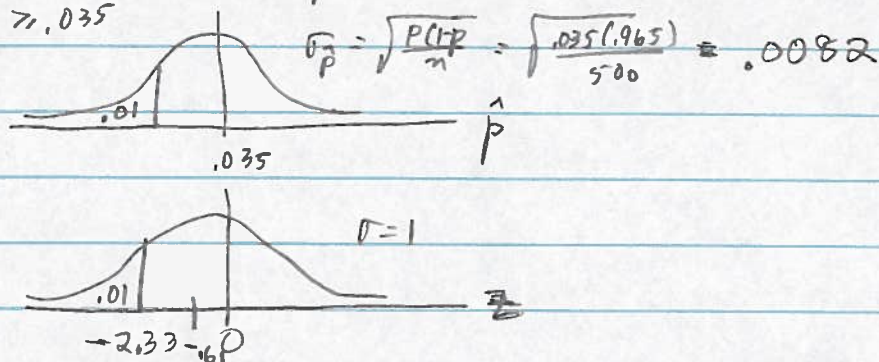 ≥ .035
σp̂ = √P(1-p/n = √.035(.965)/500 = .0082
.01
.035
p̂
σ = 1
.01
z
-2.33 -.6 0